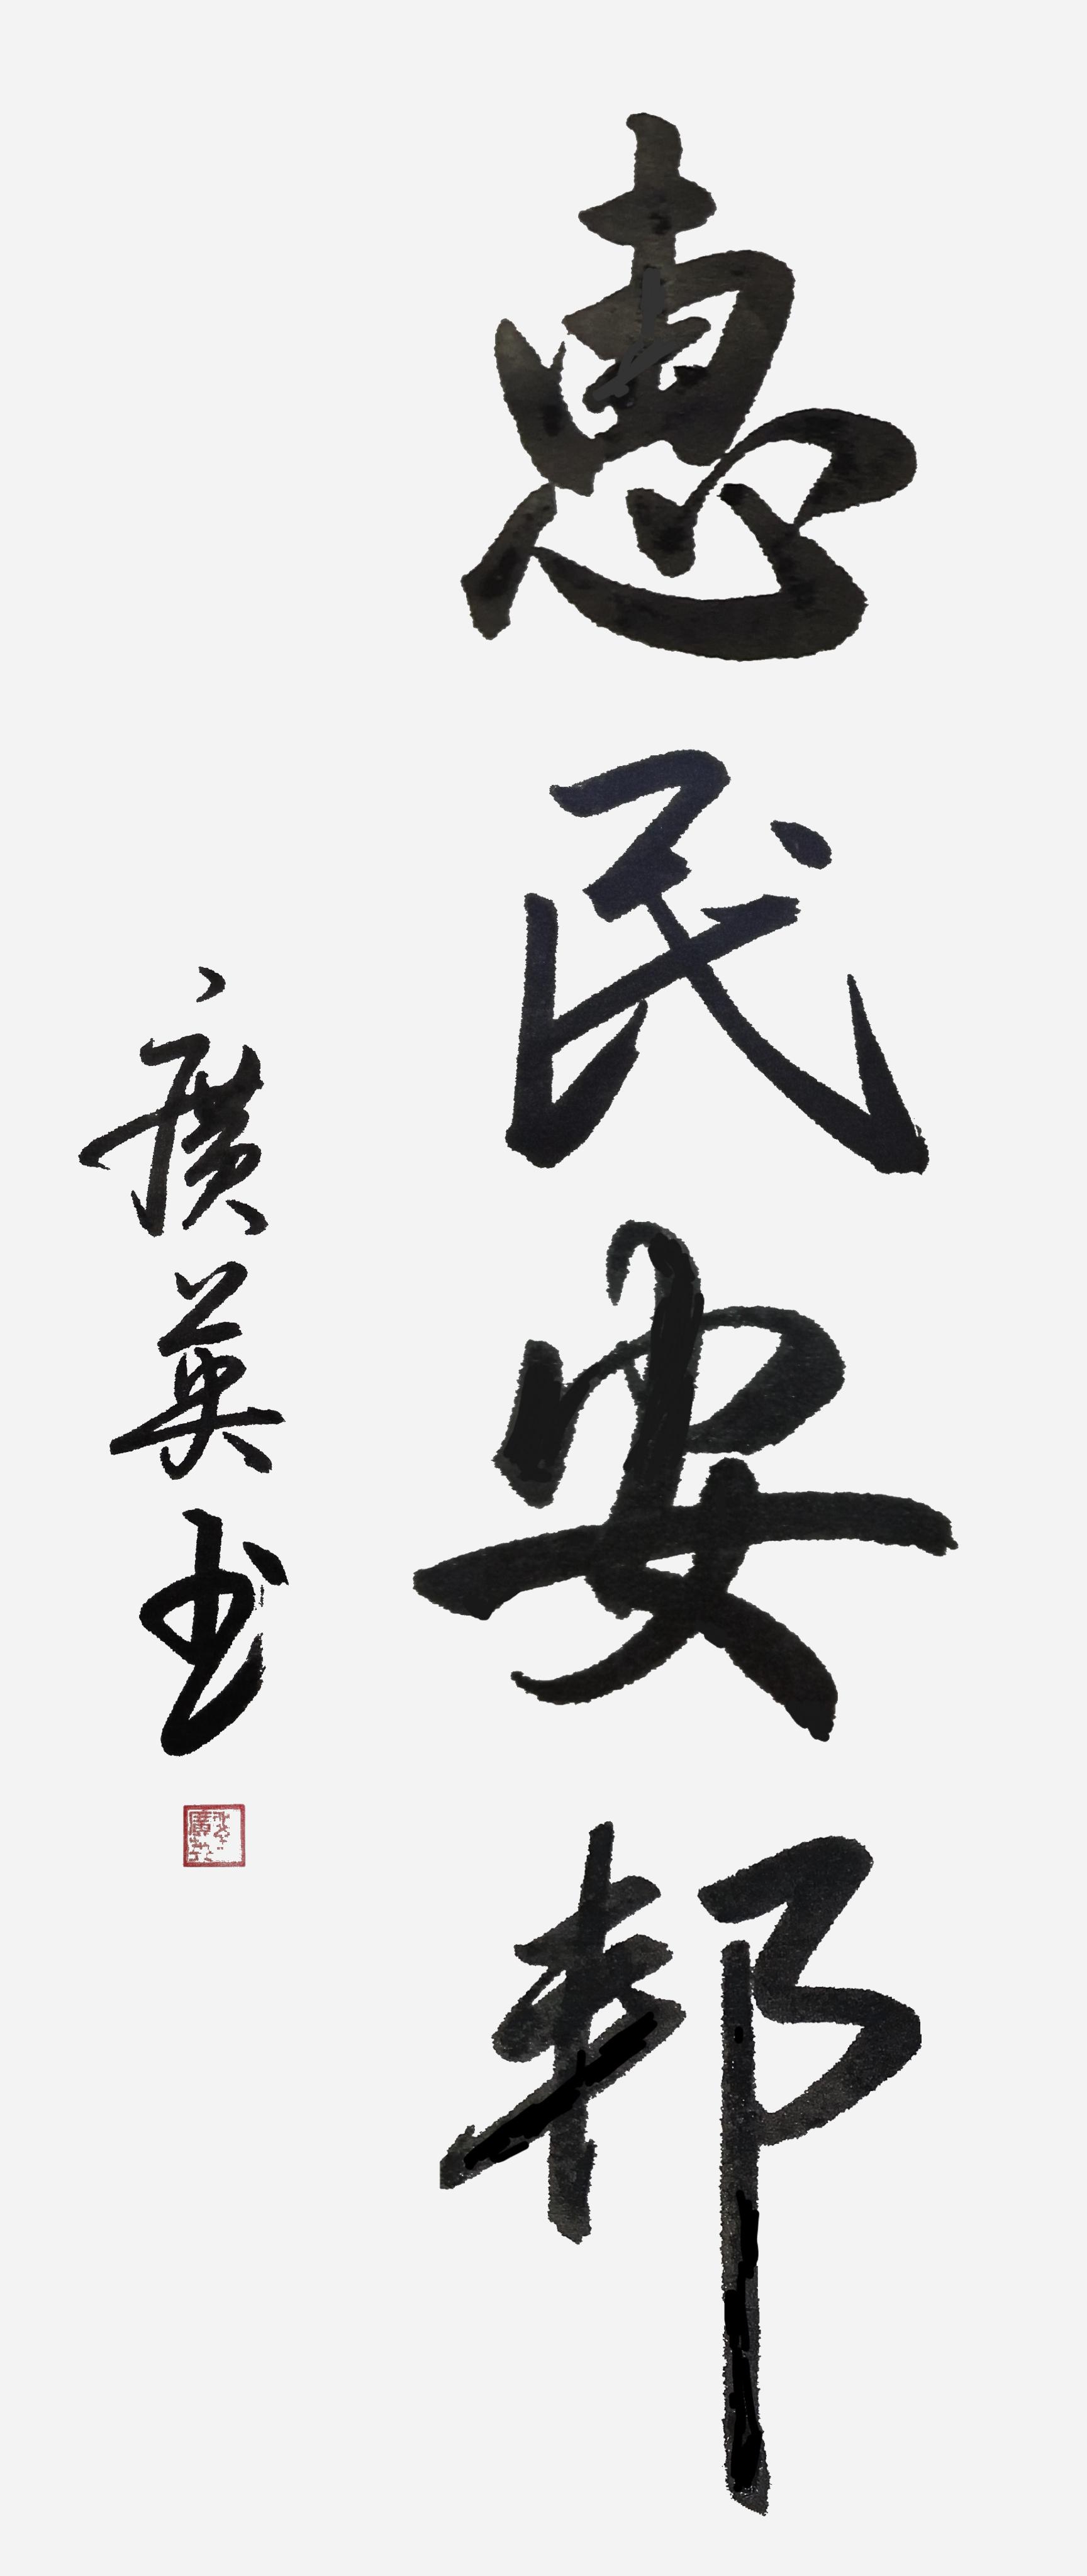 惠民安邦
廣英书